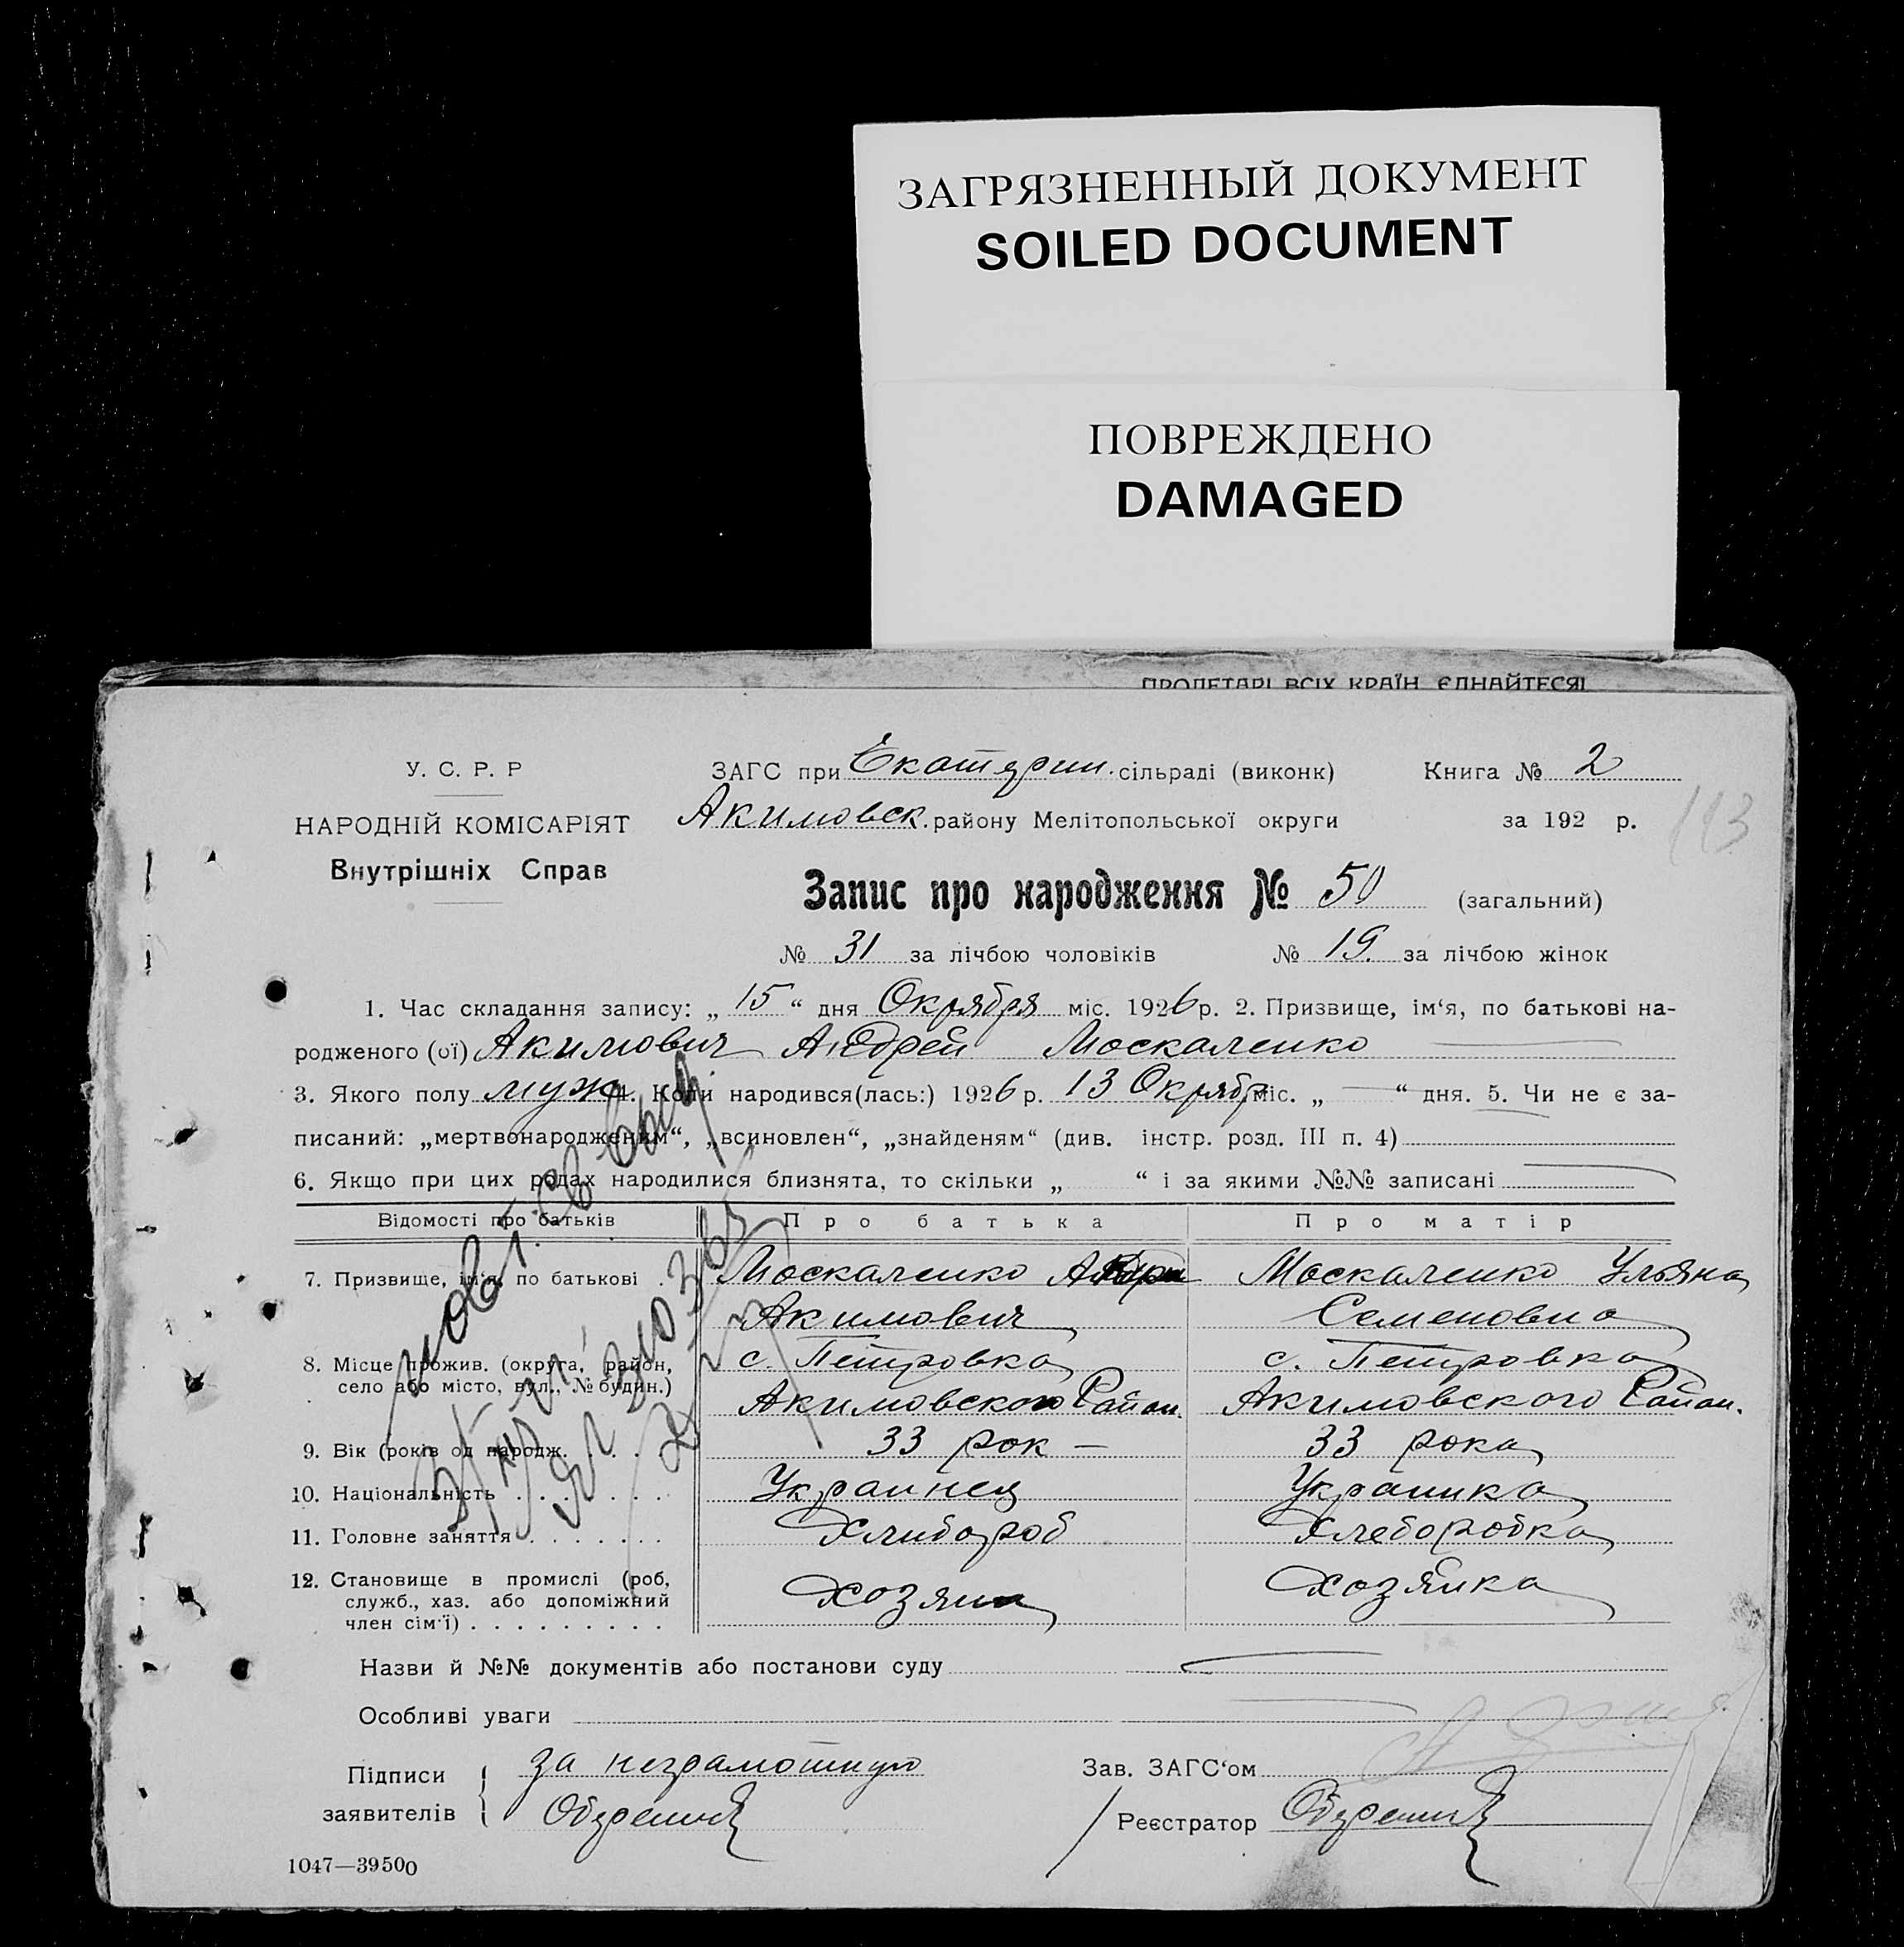 ЗАГРЯЗНЕННЫЙ ДОКУМЕНТ
SOILED DOCUMENT
ПОВРЕЖДЕНО
DAMAGED
ПРОЛЕТАРІ ВСІХ КРАЇН, ЄДНАЙТЕСЯ!
У. С. Р. Р
НАРОДНІЙ КОМІСАРІЯТ
Внутрішніх Справ
ЗАГС при Екатерин. сільраді (виконк) Книга № 2
Акимовск. району Мелітопольської округи за 192 р.
113
Запис про народження № 50 (загальний)
№ 31 за лічбою чоловіків № 19. за лічбою жінок
1. Час складання запису: „ 15 “ дня Окрября міс. 1926 р. 2. Призвище, ім‘я, по батькові на-
родженого (ої) Акимович Андрей Москаленко
3. Якого полу муж 4. Коли народився(лась:) 1926 р. 13 Окрябр міс. „ “ дня. 5. Чи не є за-
писаний: „мертвонародженим“, „всиновлен“, „знайденям“ (див. інстр. розд. III п. 4)
6. Якщо при цих родах народилися близнята, то скільки „ “ і за якими №№ записані
Відомості про батьків Про батька Про матір
7. Призвище, ім‘я, по батькові . Москаленко Москаленко Ульяна
Акимович Семеновна
8. Місце прожив. (округа, район, с. Петровка с. Петровка
село або місто, вул., № будин.)
Акимовского Район. Акимовского Район.
9. Вік (років од народж. . . . 33 рок — 33 рока
10. Національність . . . . . . . Украинец Украинка
11. Головне заняття . . . . . . . Хлибороб Хлеборобка
12. Становище в промислі (роб,
служб., хаз. або допоміжний
член сім‘ї) . . . . . . . . . Хозяин Хозяйка
Назви й №№ документів або постанови суду
Особливі уваги
Підписи за неграмотную Зав. ЗАГС‘ом
заявителів Реєстратор
1047—39500